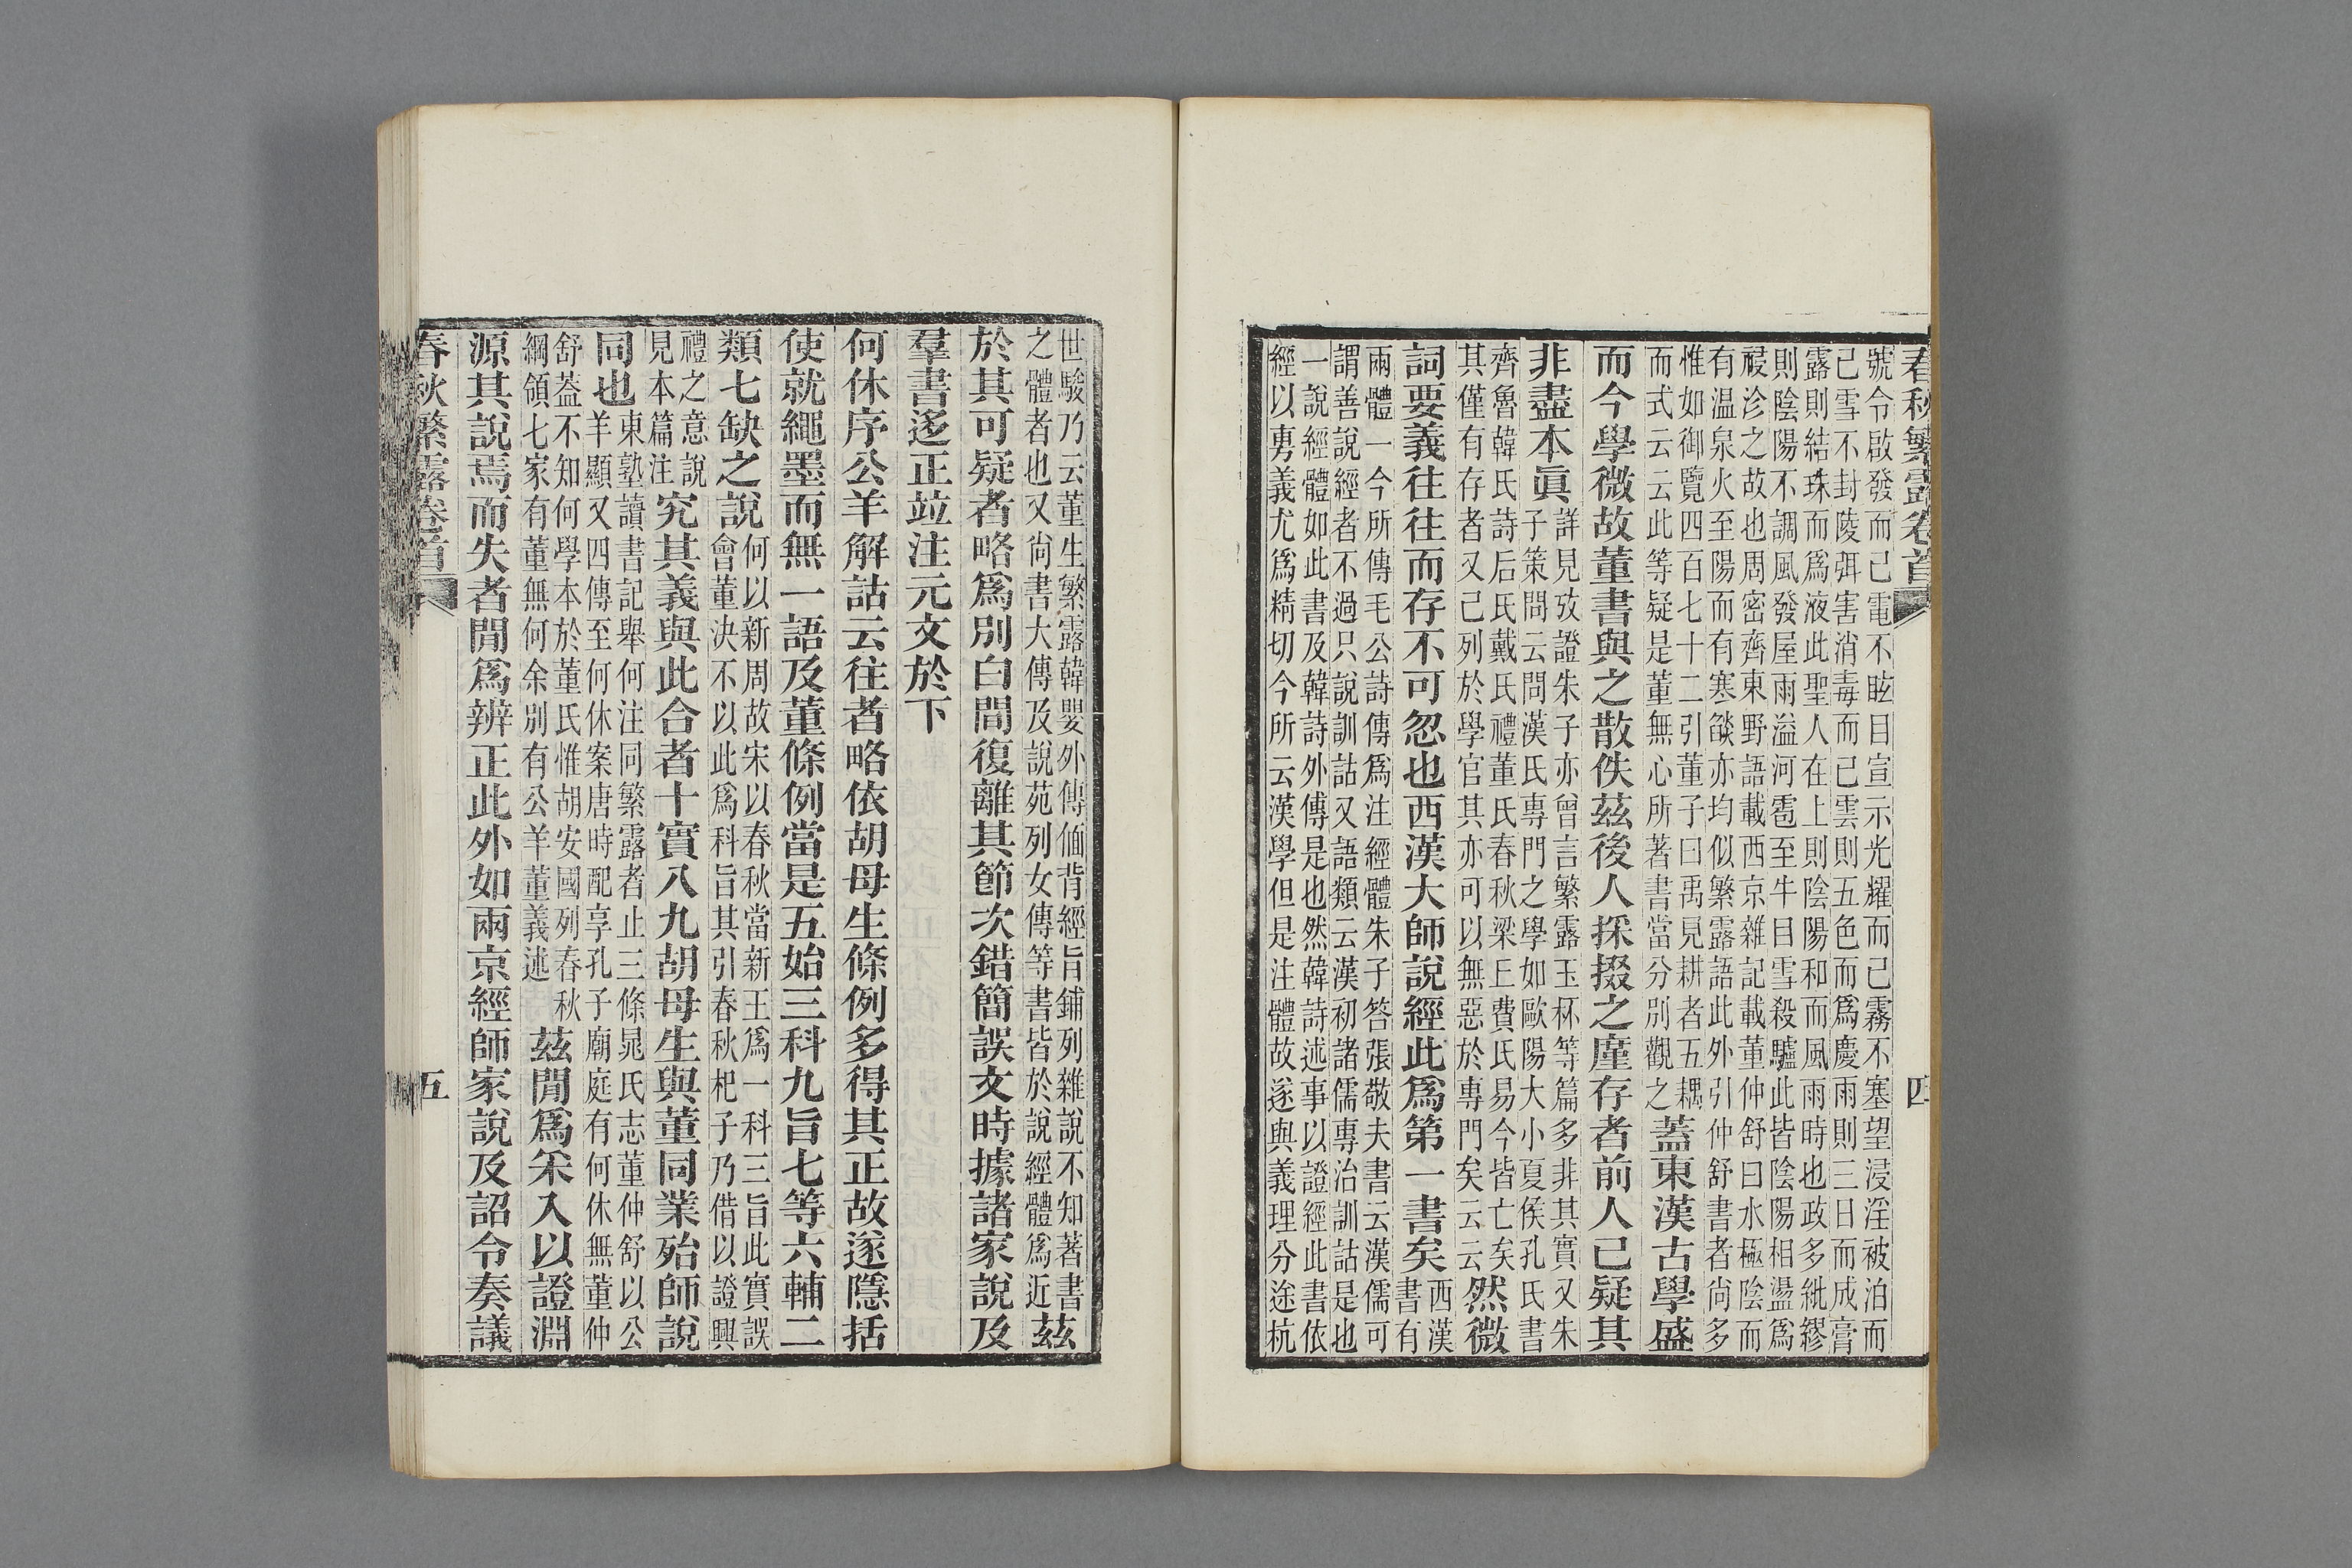 春秋繁露卷首
四
號令啟發而已電不眩目宣示光耀而已霧不塞望浸淫被泊而
已雪不封陵弭害消毒而已雲則五色而爲慶雨則三日而成膏
露則結珠而爲液此聖人在上則陰陽和而風雨時也政多紕繆
則陰陽不調風發屋雨溢河雹至牛目雪殺驢此皆陰陽相盪爲
祲沴之故也周密齊東野語載西京雜記載董仲舒曰水極陰而
有温泉火至陽而有寒燄亦均似繁露語此外引仲舒書者尚多
惟如御覽四百七十二引董子曰禹見耕者五耦
而式云云此等疑是董無心所著書當分別觀之
蓋東漢古學盛
而今學微故董書與之散佚茲後人採掇之廑存者前人已疑其
非盡本眞
詳見攷證朱子亦曾言繁露玉杯等篇多非其實又朱
子策問云問漢氏專門之學如歐陽大小夏侯孔氏書
齊魯韓氏詩后氏戴氏禮董氏春秋梁丘費氏易今皆亡矣
其僅有存者又已列於學官其亦可以無惡於專門矣云云
然微
詞要義往往而存不可忽也西漢大師說經此爲第一書矣
西漢
書有
兩體一今所傳毛公詩傳爲注經體朱子答張敬夫書云漢儒可
謂善說經者不過只說訓詁又語類云漢初諸儒專治訓詁是也
一說經體如此書及韓詩外傳是也然韓詩述事以證經此書依
經以旉義尤爲精切今所云漢學但是注體故遂與義理分途杭
世駿乃云董生繁露韓嬰外傳偭背經旨鋪列雜說不知著書
之體者也又尚書大傳及說苑列女傳等書皆於說經體爲近
茲
於其可疑者略爲別白間復離其節次錯簡誤文時據諸家說及
羣書迻正竝注元文於下
何休序公羊解詁云往者略依胡母生條例多得其正故遂隱括
使就繩墨而無一語及董條例當是五始三科九旨七等六輔二
類七缺之說
何以新周故宋以春秋當新王爲一科三旨此實誤
會董決不以此爲科旨其引春秋杞子乃借以證興
禮之意說
見本篇注
究其義與此合者十實八九胡母生與董同業殆師說
同也
東塾讀書記舉何注同繁露者止三條晁氏志董仲舒以公
羊顯又四傳至何休案唐時配享孔子廟庭有何休無董仲
舒葢不知何學本於董氏惟胡安國列春秋
綱領七家有董無何余別有公羊董義述
茲閒爲采入以證淵
源其說焉而失者閒爲辨正此外如兩京經師家說及詔令奏議
春秋繁露卷首
五